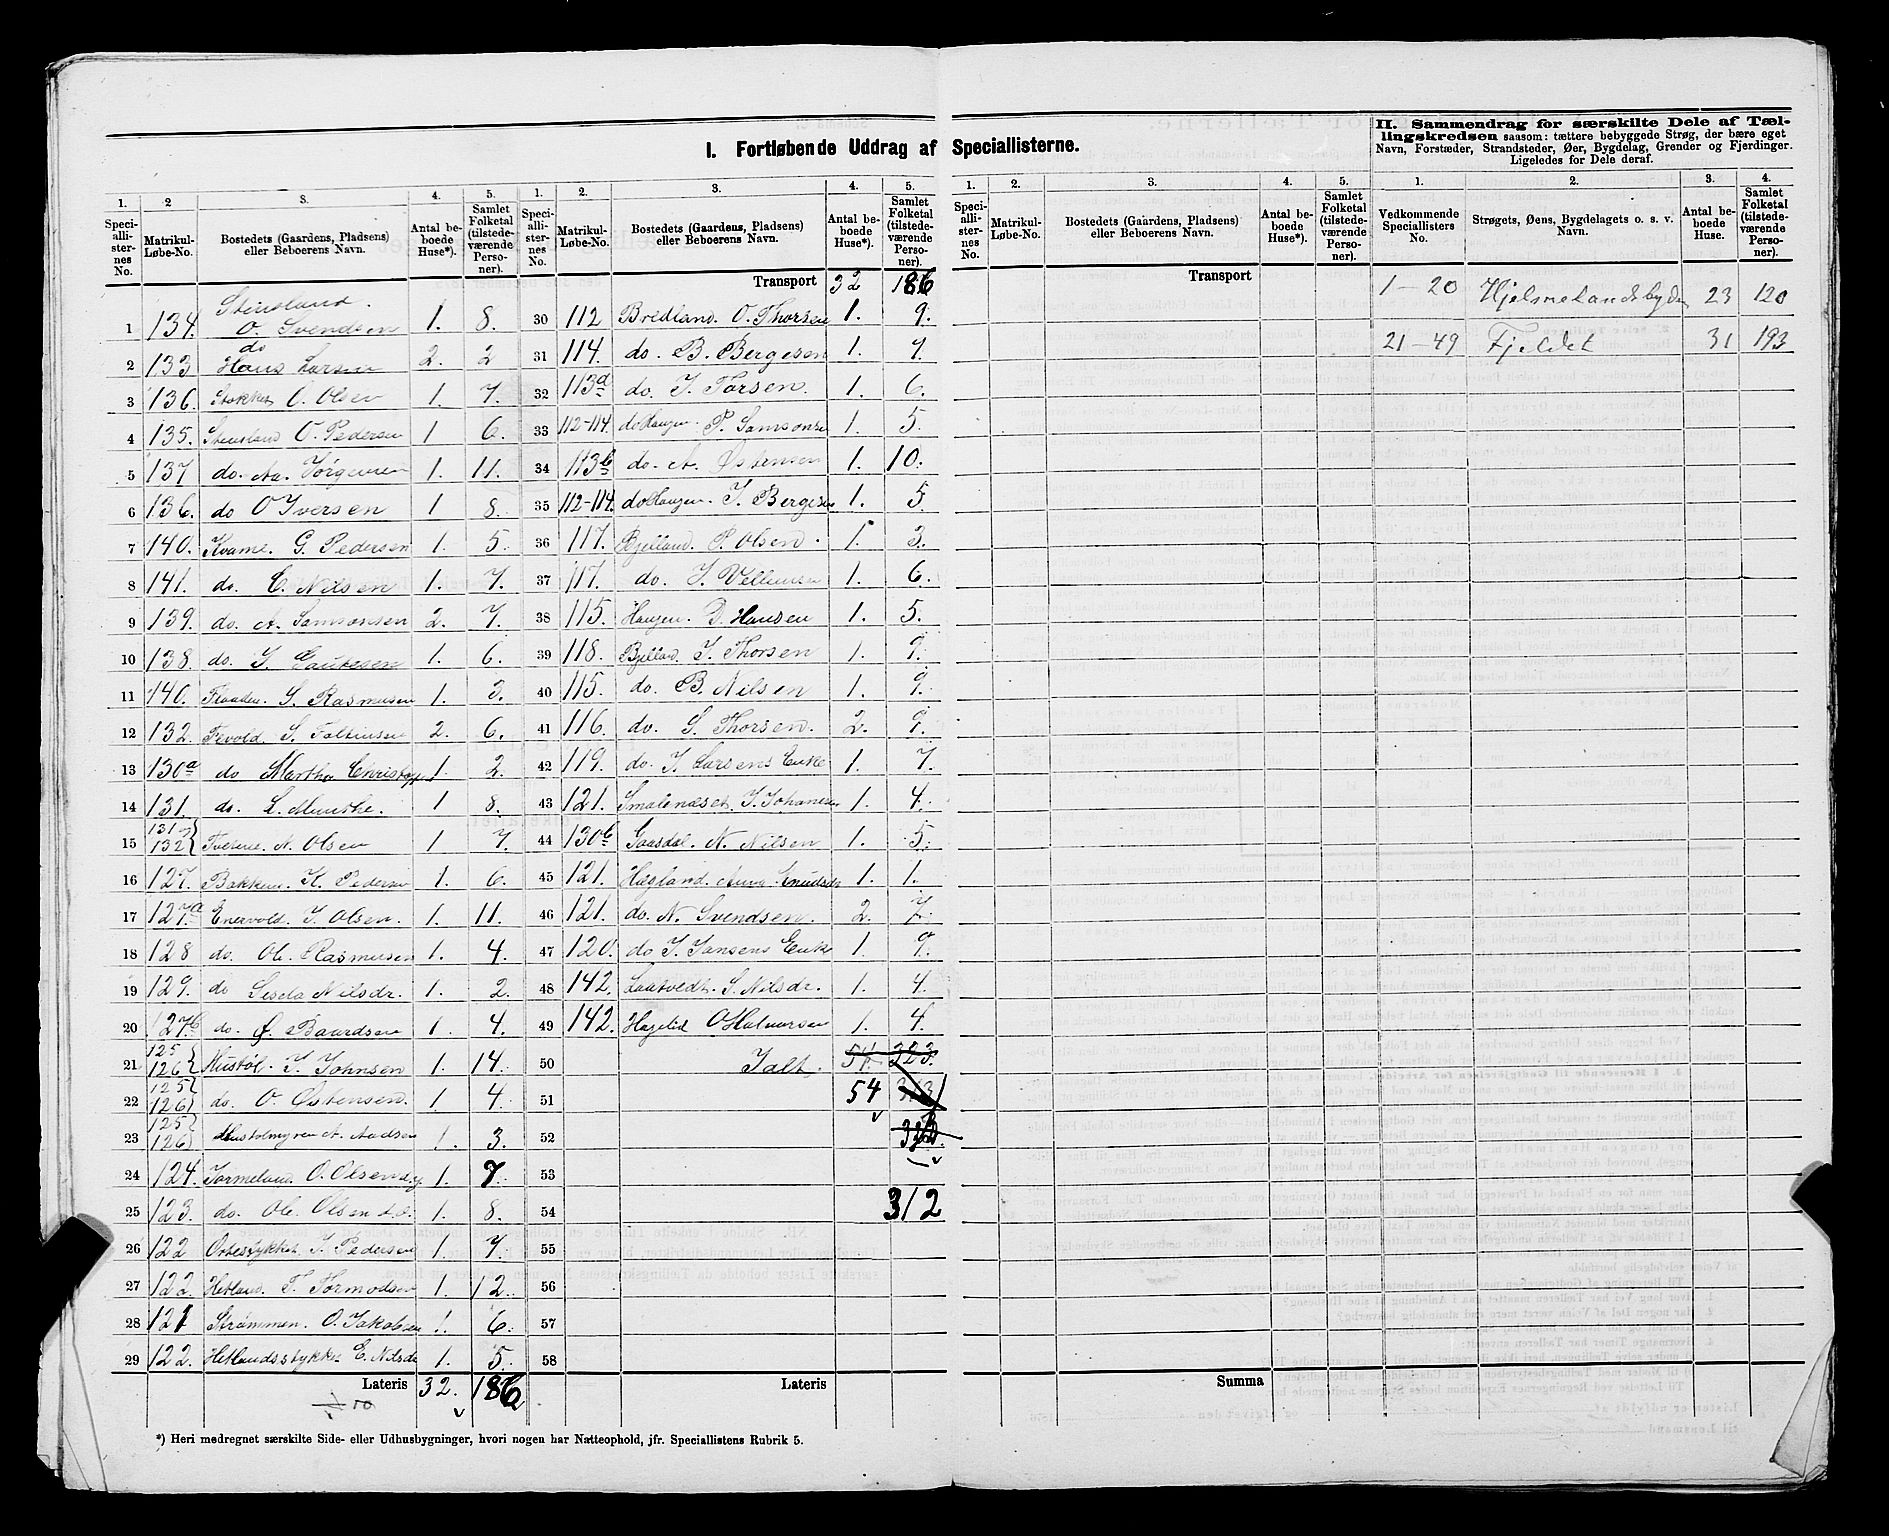 I. Fortløbende Uddrag af Speciallisterne.
II. Sammendrag for særskilte Dele af Tællingskredsen saasom: tættere bebyggede Strøg, der bære eget Navn, Forstæder, Strandsteder, Øer, Bygdelag, Grender og Fjerdinger. Ligeledes for Dele deraf.
1. 2 3. 4. 5. 1. 2. 3. 4. 5. 1. 2. 3. 4. 5. 1. 2. 3. 4.
Speciallisternes No. Matrikul-Løbe-No. Bostedets (Gaardens, Pladsens) eller Beboerens Navn. Antal beboede Huse*). Samlet Folketal (tilstedeværende Personer).
Speciallisternes No. Matrikul-Løbe-No. Bostedets (Gaardens, Pladsens) eller Beboerens Navn. Antal beboede Huse*). Samlet Folketal (tilstedeværende Personer).
Speciallisternes No. Matrikul-Løbe-No. Bostedets (Gaardens, Pladsens) eller Beboerens Navn. Antal beboede Huse*). Samlet Folketal (tilstedeværende Personer).
Vedkommende Speciallisters No. Strøgets, Øens, Bygdelagets o. s. v. Navn. Antal beboede Huse. Samlet Folketal (tilstedeværende Personer).
1 134. Stensland. O. Svendsen 1. 8.
2 133 do Hans Larsen 2. 2
3 136. Stokket O. Olsen 1. 7.
4 135. Stensland O. Pedersen 1 6.
5 137 do. Aa. Jörgensen 1. 11.
6 136. do O Iversen 1 8.
7 140. Kvame. G. Pedersen 1. 5.
8 141. do. C. Nilsen 1. 7.
9 139. do. A. Samsonsen 2. 7.
10 138. do. J. Gautesen 1. 6.
11 140. Flaaden. S. Rasmusen 1. 3.
12 132. Fevold. S. 2. 6.
13 130a do Martha 1. 2.
14 131. do. L. Munthe. 1 8.
15 131 132 N. Olsen 1 7.
16 127. Bakken. K. Pedersen 1. 6.
17 127.a Enervold. J. Olsen. 1. 11.
18 128 do. Ole Rasmusen 1. 4.
19 129. do Sisela Nilsdr. 1. 2.
20 127.b do. Ø. Baardsen 1. 4.
21 125 126 Mustøl. J. Johnsen 1. 14.
22 125 126 do. O. Østensen. 1. 4.
23 125 126 Mustølmyren A. Aadsen 1. 3.
24 124. Tormeland. O. Olsen d.y 1. 7.
25 123. do. Ole Olsen d.æ. 1. 8.
26 122 J. Pedersen 1. 7.
27 122. Hetland. T. Tormodsen 1. 12.
28 121 Strømmen. O. Jakobsen 1. 6.
29 122. Hetlandsstykket E. Nilsdr 1. 5.
Lateris 32. 186
Transport 32 186
30 112 Bredland. O. Thorsen 1. 9.
31 114. do. B. Bergesen 1. 7.
32 113a do. J. Torsen. 1. 6.
33 112-114. do Haugen. P. Samsonsen 1. 5.
34 113b do. A. Østensen 1. 10.
35 112-114. do Haugen. J. Bergesen 1. 5.
36 117. Bjelland. P. Olsen. 1. 3.
37 117. do. J. Vellumsen 1. 6.
38 115. Haugen. D. Hansen 1. 5.
39 118. Bjelland. J. Thorsen 1. 9.
40 115. do. B. Nilsen 1. 9.
41 116. do. S. Thorsen. 2. 9.
42 119. do. J. Larsens Enke 1. 7.
43 121. Smalenæset. J. Johanesen 1. 4.
44 130b Gaasdal. N. Nilsen 1. 5.
45 121. Hægland. Anna Knudsdr 1. 1.
46 121. do. N. Svendsen. 2. 7.
47 120. do J. Jansens Enke 1. 9.
48 142. Laatvedt. S. Nilsdr. 1. 4.
49 142. Hagelid O Halvorsen 1. 4.
50 Ialt. 54. 323.
51 54 313
52
53
54 312
55
56
57
58
Lateris
Transport
Summa
1-20 Hjelmelandsbygden 23 120
21-49 Fjeldet 31 193
*) Heri medregnet særskilte Side- eller Udhusbygninger, hvori nogen har Natteophold, jfr. Speciallistens Rubrik 5.